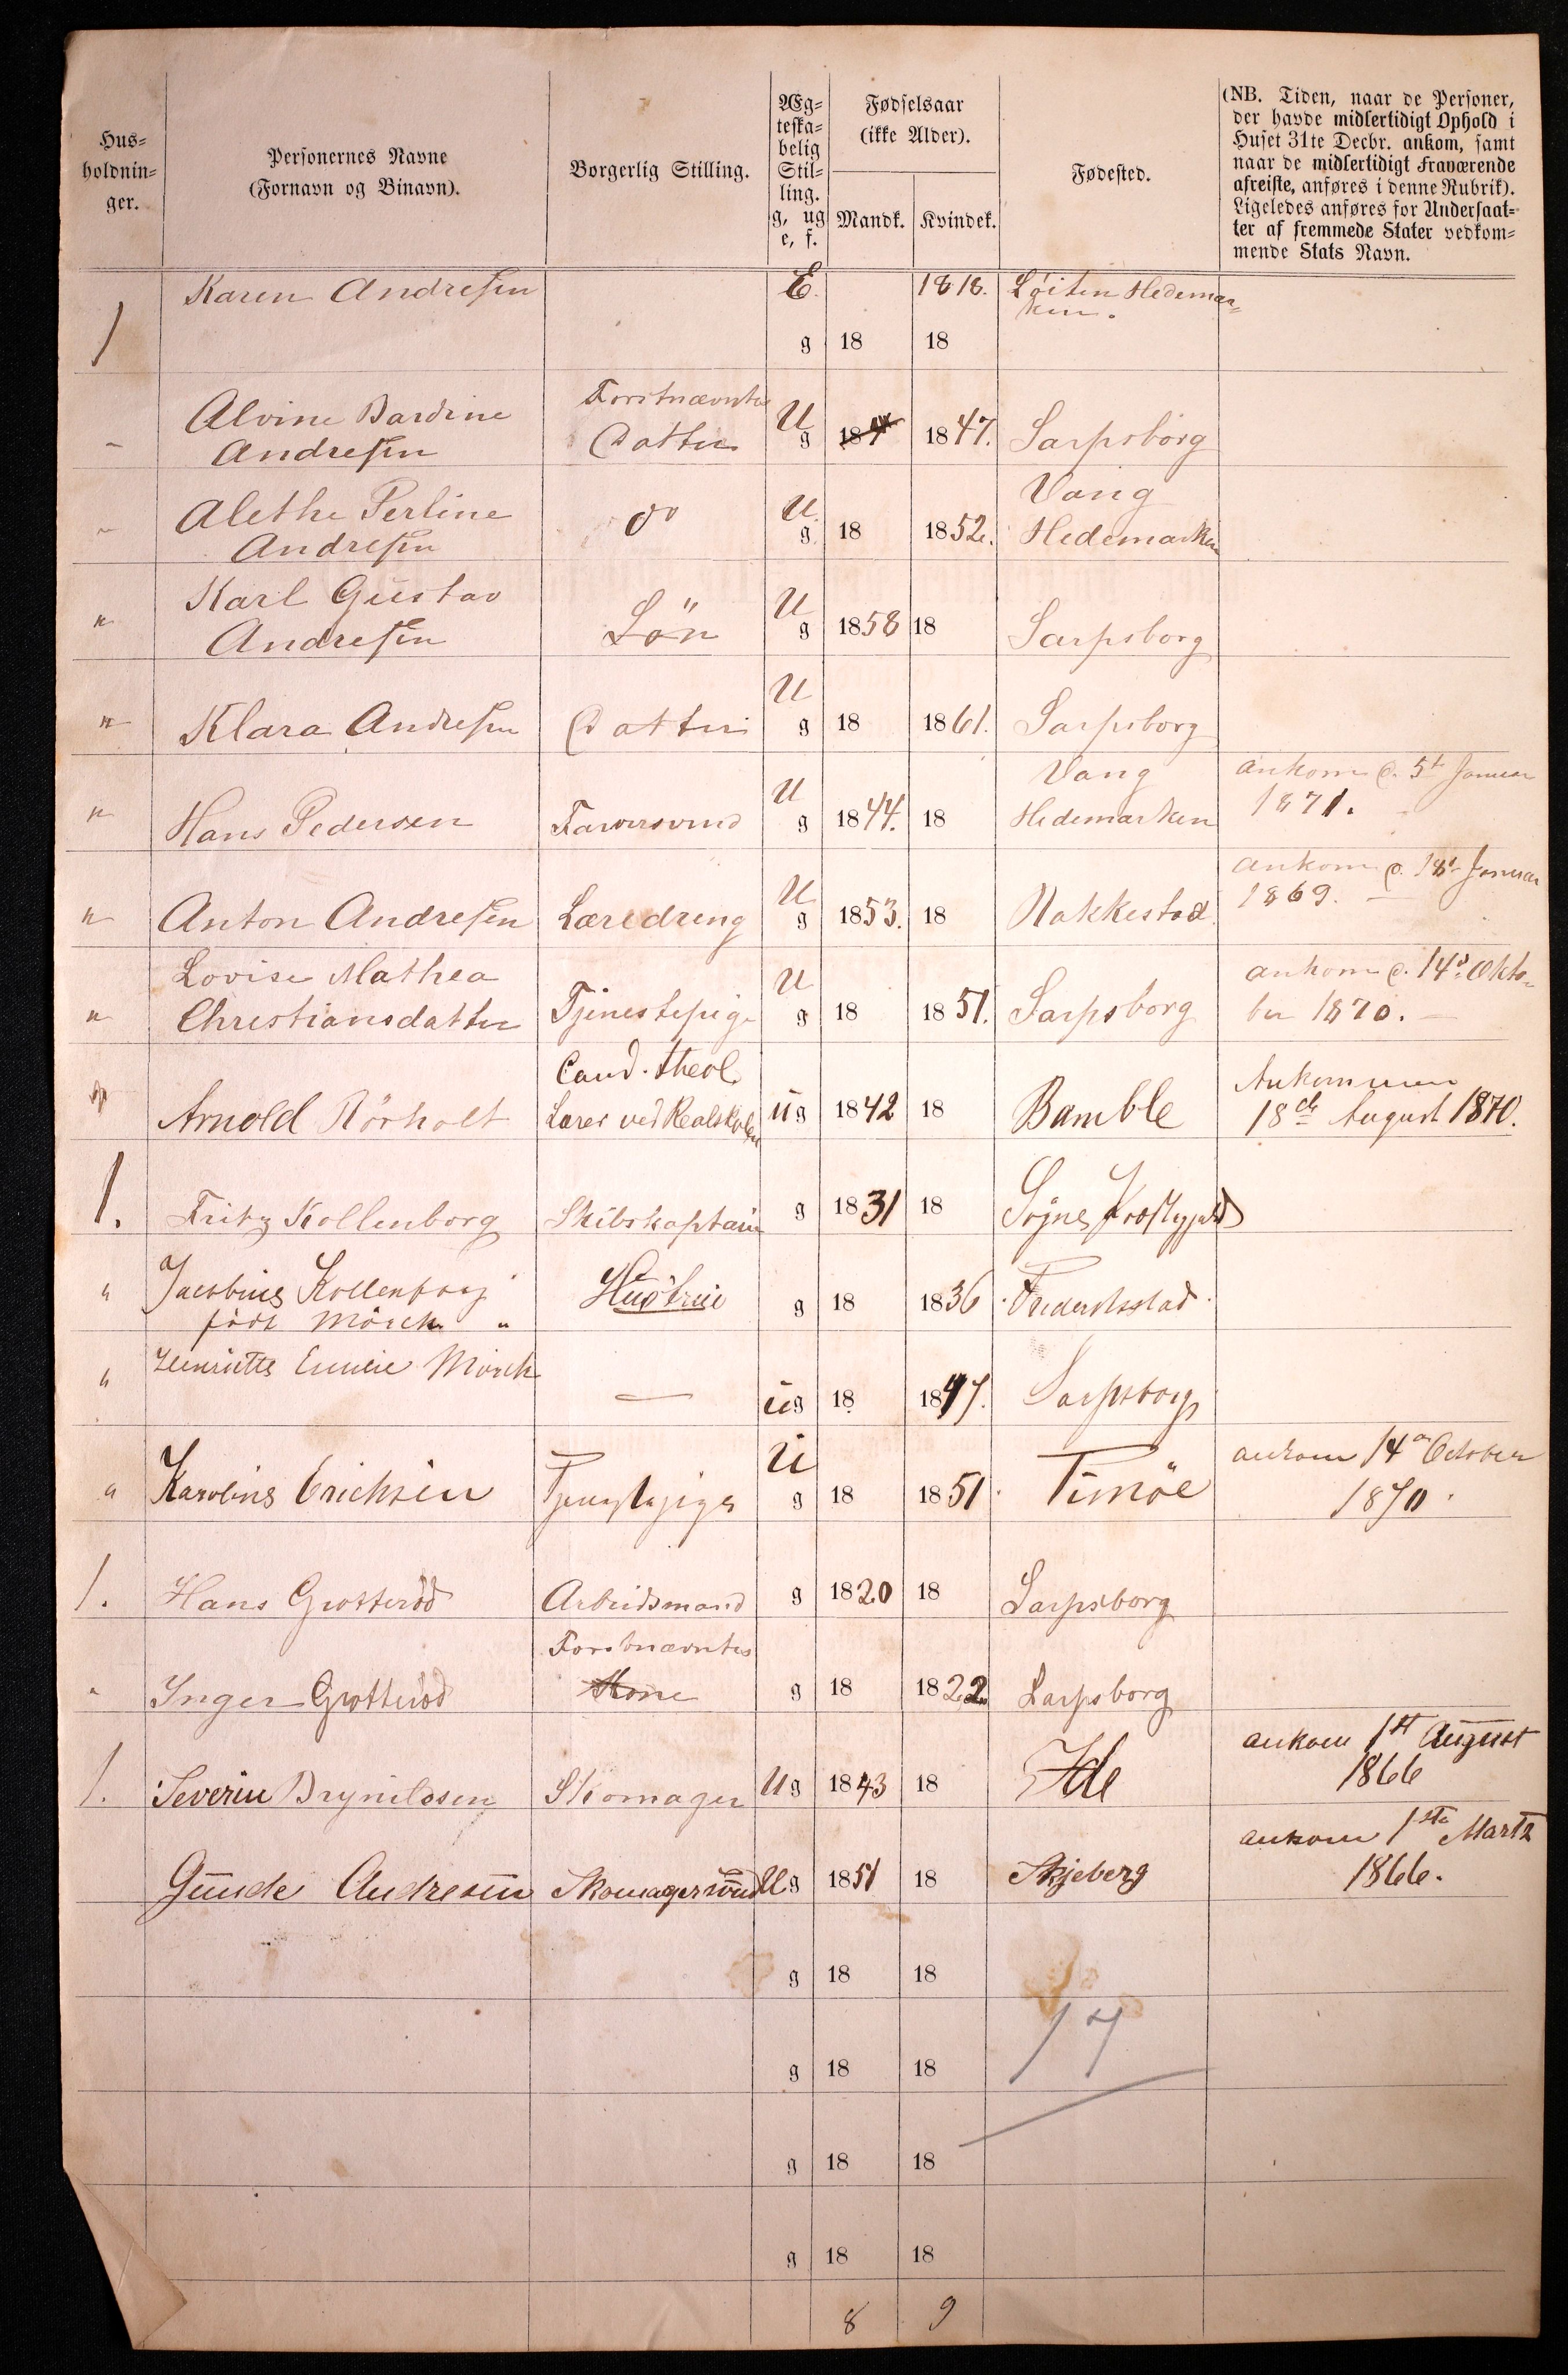 Hus-
holdnin-
ger.
Personernes Navne
(Fornavn og Binavn).
Borgerlig Stilling.
Æg-
teska-
belig
Stil-
ling.
g, ug
e, f.
Fødselsaar
(ikke Alder).
Mandk. Kvindek.
Fødested.
(NB. Tiden, naar de Personer,
der havde midlertidigt Ophold i
Huset 31te Decbr. ankom, samt
naar de midlertidigt Fraværende
afreiste, anføres i denne Rubrik).
Ligeledes anføres for Undersaat-
ter af fremmede Stater vedkom-
mende Stats Navn.
Karen Andresen E. 1818. Löiten Hedemar-
ken.
1 g 18 18
Forstnævntes
Alvine Bardine U
Andresen Datter g 184 1847. Sarpsborg
Vang
Alethe Perline do U.
Andresen g 18 1852. Hedemarken
Karl Gustav U
" Andresen Sön g 1858 18 Sarpsborg
U
" Klara Andresen Datter g 18 1861. Sarpsborg
Vang ankom d. 5t Januar
" U 1871.
Hans Pedersen Farversvend g 1844. 18 Hedemarken
ankom d. 18t Januar
U 1869.
" Anton Andresen Læredreng g 1853. 18 Rakkestad
Lovise Mathea U ankom d. 14d Okto-
" Christiansdatter Tjenestepige g 18 1851. Sarpsborg ber 1870.
Cand. theol. Ankommen
" Arnold Rörholt Lærer ved Realskolen ug 1842 18 Bamble 18de August 1870.
1. Fritz Kollenborg Skibskaptain g 1831 18 Sogne Præstegjeld
" Jacobine Kollenborg Hustrue
födt Mörch " g 18 1836 Frederiksstad
" Henriette Emilie Mörch — ug 18 1847. Sarpsborg
U ankom 14de October
" Karoline Erichsen Tjenestepige g 18 1851 Timöe 1870.
1. Hans Grotteröd Arbeidsmand g 1820 18 Sarpsborg
Forstnævntes
" Inger Grotteröd Kone g 18 1822 Sarpsborg
ankom 1st August
1. Severin Brynilssen Skomager Ug 1843 18 Ide 1866
ankom 1ste Marts
Gunde Andresen Skomagersvend Ug 1851 18 Skjeberg 1866.
g 18 18
17
g 18 18
g 18 18
g 18 18
8 9